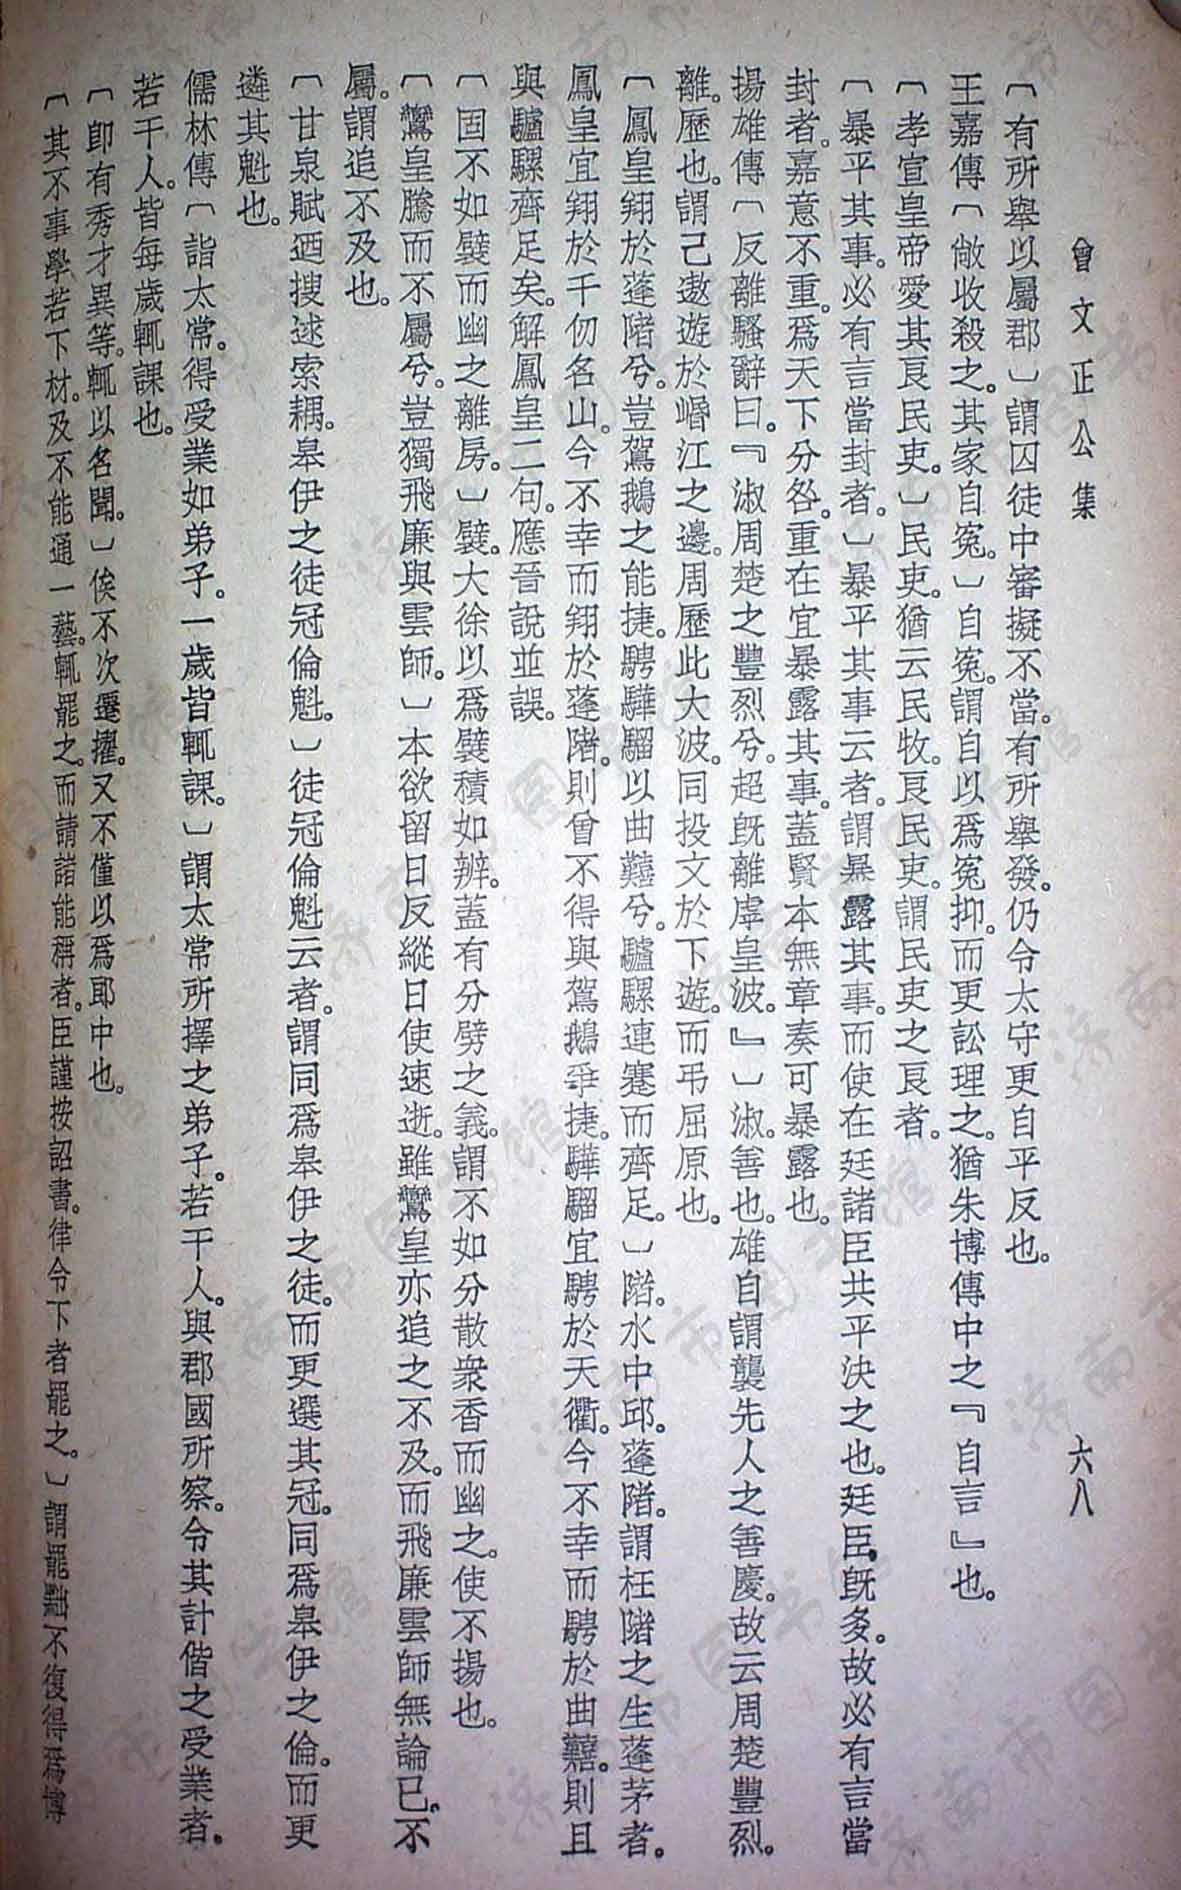 曾文正公集
六八
〔有所舉以屬郡〕謂囚徒中審擬不當。有所舉發。仍令太守更自平反也。
王嘉傳〔敞收殺之。其家自冤。〕自冤。謂自以爲冤抑。而更訟理之。猶朱博傳中之『自言』也。
〔孝宣皇帝愛其良民吏。〕民吏。猶云民牧。良民吏。謂民吏之良者。
〔暴平其事。必有言當封者。〕暴平其事云者。謂暴露其事。而使在廷諸臣共平決之也。廷臣既多。故必有言當
封者。嘉意不重。爲天下分咎。重在宜暴露其事。蓋賢本無章奏可暴露也。
揚雄傳〔反離騷辭曰。『淑周楚之豐烈兮。超既離虖皇波。』〕淑。善也。雄自謂襲先人之善慶。故云周楚豐烈。
離。歷也。謂己遨遊於崏江之邊。周歷此大波。同投文於下遊。而弔屈原也。
〔鳳皇翔於蓬陼兮。豈駕鵝之能捷。騁驊騮以曲囏兮。驢騾連蹇而齊足。〕陼。水中邱。蓬陼。謂枉陼之生蓬茅者。
鳳皇宜翔於千仞名山。今不幸而翔於蓬陼。則曾不得與駕鵝爭捷。驊騮宜騁於天衢。今不幸而騁於曲囏。則且
與驢騾齊足矣。解鳳皇二句。應晉說並誤。
〔固不如襞而幽之離房。〕襞。大徐以爲襞積如辨。蓋有分劈之義。謂不如分散衆香而幽之。使不揚也。
〔鸞皇騰而不屬兮。豈獨飛廉與雲師。〕本欲留日反縱日使速逝。雖鸞皇亦追之不及。而飛廉雲師無論已。不
屬。謂追不及也。
〔甘泉賦迺搜逑索耦。皋伊之徒冠倫魁。〕徒冠倫魁云者。謂同爲皋伊之徒。而更選其冠。同爲皋伊之倫。而更
遴其魁也。
儒林傳〔詣太常。得受業如弟子。一歲皆輒課。〕謂太常所擇之弟子。若干人。與郡國所察。令其計偕之受業者。
若干人。皆每歲輒課也。
〔卽有秀才異等。輒以名聞。〕俟不次遷擢。又不僅以爲郎中也。
〔其不事學若下材。及不能通一藝。輒罷之。而請諸能稱者。臣謹按詔書。律令下者罷之。〕謂罷黜不復得爲博